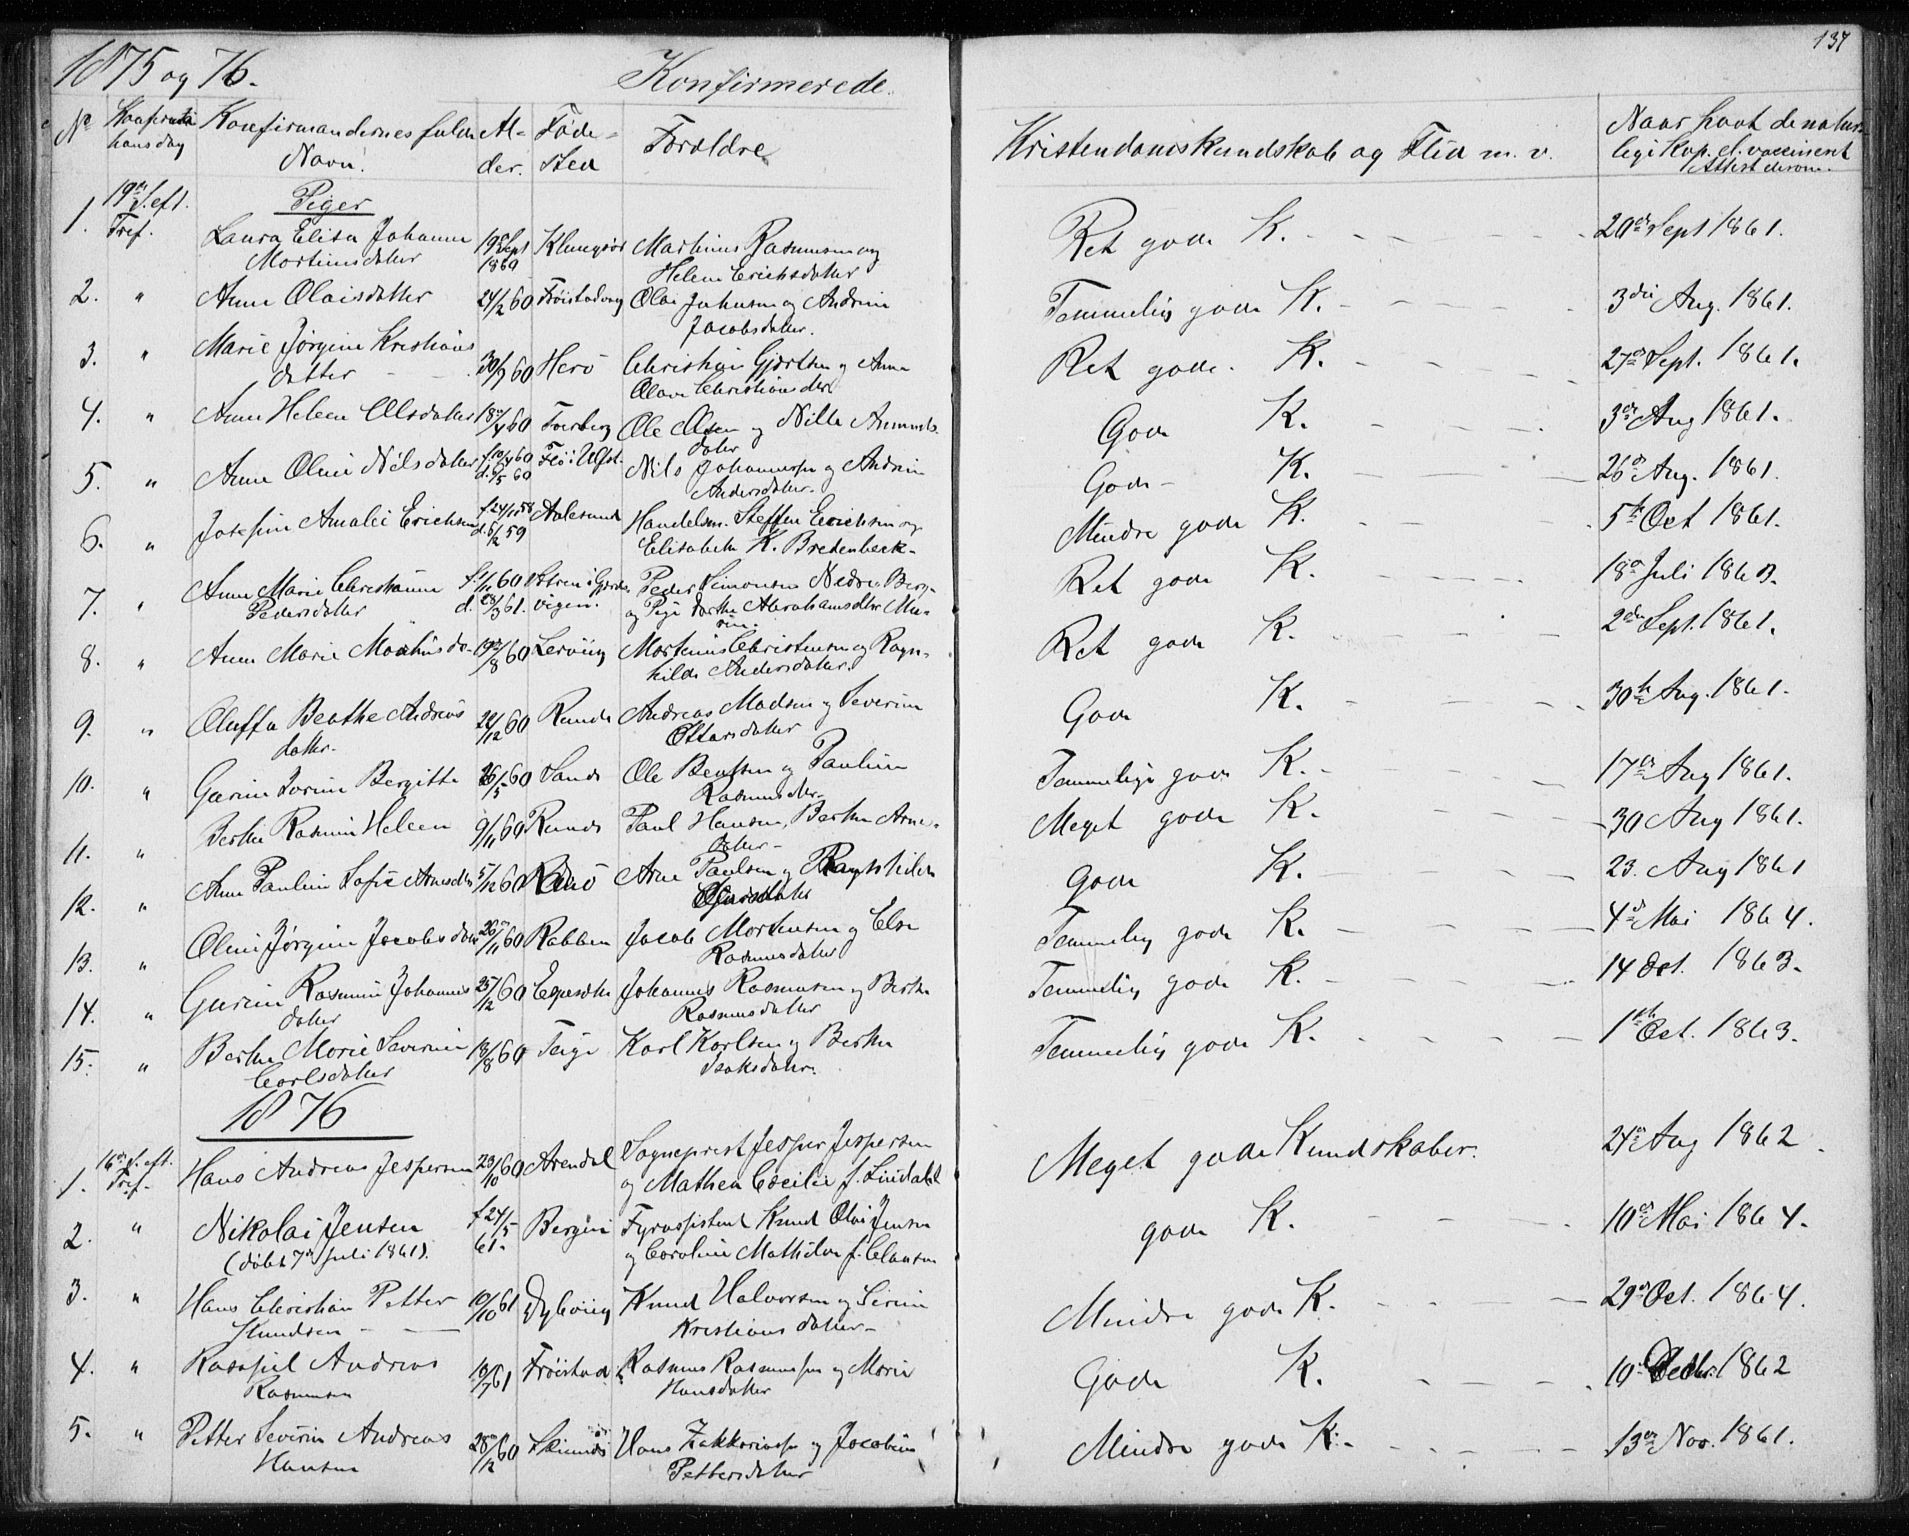 137
1875 og 76.
Konfirmerede.
No
Konfirmandernes fulde
Navn.
Al-
der.
Føde-
sted
Foreldre
Kristendomskundskab og Flid m. v.
Naar havt de natur-
lige Kop. el. vaccineret
Attest derom.
Piger
1. 19de S. eft. Tref.
Laura Elisa Johanne
Martinusdatter
19de Sept 1860
Martinus Rasmusen og
Helene Erichsdatter
Ret gode K.
20de Sept 1861.
2. "
Anne Olaisdatter
24/2 60
Olai Johnsen og Andrine
Jacobsdatter.
Temmelig gode K.
3die Aug. 1861.
3. "
Marie Jørgine Kristians
datter
30/7 60
Herö
Christian Gjertsen og Anne
Olave Christiansdtr
Ret gode. K.
27de Sept. 1861.
4. "
Anne Helene Olsdatter
18de/4 60
Ole Olsen og Nille
datter
Gode K.
3die Aug 1861.
5. "
Anne Oline Nilsdatter
Nils Johannessen og Andrine
Andersdatter.
Gode K.
26de Aug. 1861.
6. "
Josefine Amalie Erichsen
f. 24/12 58
d. 5/2 59
Aalesund
Handelsm. Steffen Erichsen og
Elisabeth K. Bredenbeck.
Mindre gode K.
5te Oct 1861.
7. "
Anne Marie Christianne
Pedersdatter
f. 1/11 60
d. 28/3 61.
Peder Simonsen Nedre Berg-
og Pige Dorthe Abrahamsdtr Mu-
ren.
Ret gode K.
18de Juli 1863.
8. "
Anne Marie
19de/8 60
Leröug
Martinus Christensen og Ragn-
hilde Andersdatter.
Ret gode K.
2den Sept. 1861.
9. "
Oluffa Beathe Andreas
datter.
22/12 60
Runde
Andreas Madsen og Severine
Ottarsdatter
Gode K.
30te Aug. 1861.
10. "
Gurine Bergitte
26/5 60
Sande
Ole Bentsen og Pauline
Rasmusdtr.
Temmelige gode K.
17de Aug 1861.
11. "
Berthe Rasmine Helene
9/11 60
Runde
Paul Hansen, Berthe Arne-
datter
Meget gode K.
30 Aug 1861.
12. "
Anne Pauline Sofie Arnesdtr
5/12 60
Arne Paulsen og
Gode K.
23. Aug 1861
13. "
Oline Jørgine Jacobsdatter
26de/11 60
Rabben
Jacob Mortensen og Else
Rasmusdatter
Temmelig gode K.
4de Mai 1864.
14. "
Gurine Rasmine Johannes
datter
25/12 60
Johannes Rasmusen og Berthe
Rasmusdatter
Temmelig gode K.
14 Oct. 1863.
15. "
Berthe Marie Severine
Carlsdatter
13/8 60
Teige
Karl Karlsen og Berthe
Isaksdatter.
Temmelig gode K.
1ste Oct. 1863.
1876
1. 16de S. eft. Tref.
Hans Andreas Jespersen
23/10 60
Arendal
Sogneprest Jesper Jespersen
og Mathea Cecilie f. Lindahl
Meget gode Kundskaber.
24de Aug 1862.
2. "
Nikolai Jensen
(døbt 7de Juli 1861).
f 24/5
61.
Bergen
Fyrassistent Knud Olai Jensen
og Caroline Mathilde f. Clausen
gode K.
10de Mai 1864.
3. "
Hans Christian Petter
Knudsen
10/10 61
Knud Halvorsen og Serine
Kristiansdatter
Mindre gode K.
29de Oct. 1864.
4. "
Andreas
Rasmusen
10/7 61
Frøistad
Rasmus Rasmussen og Marie
Hansdatter
Gode K.
10 Decbr. 1862
5. "
Petter Severin Andreas
Hansen
28de/12 60
Hans Zakkariassen og Jacobine
Pettersdatter
Mindre gode K.
13de Nov. 1861.